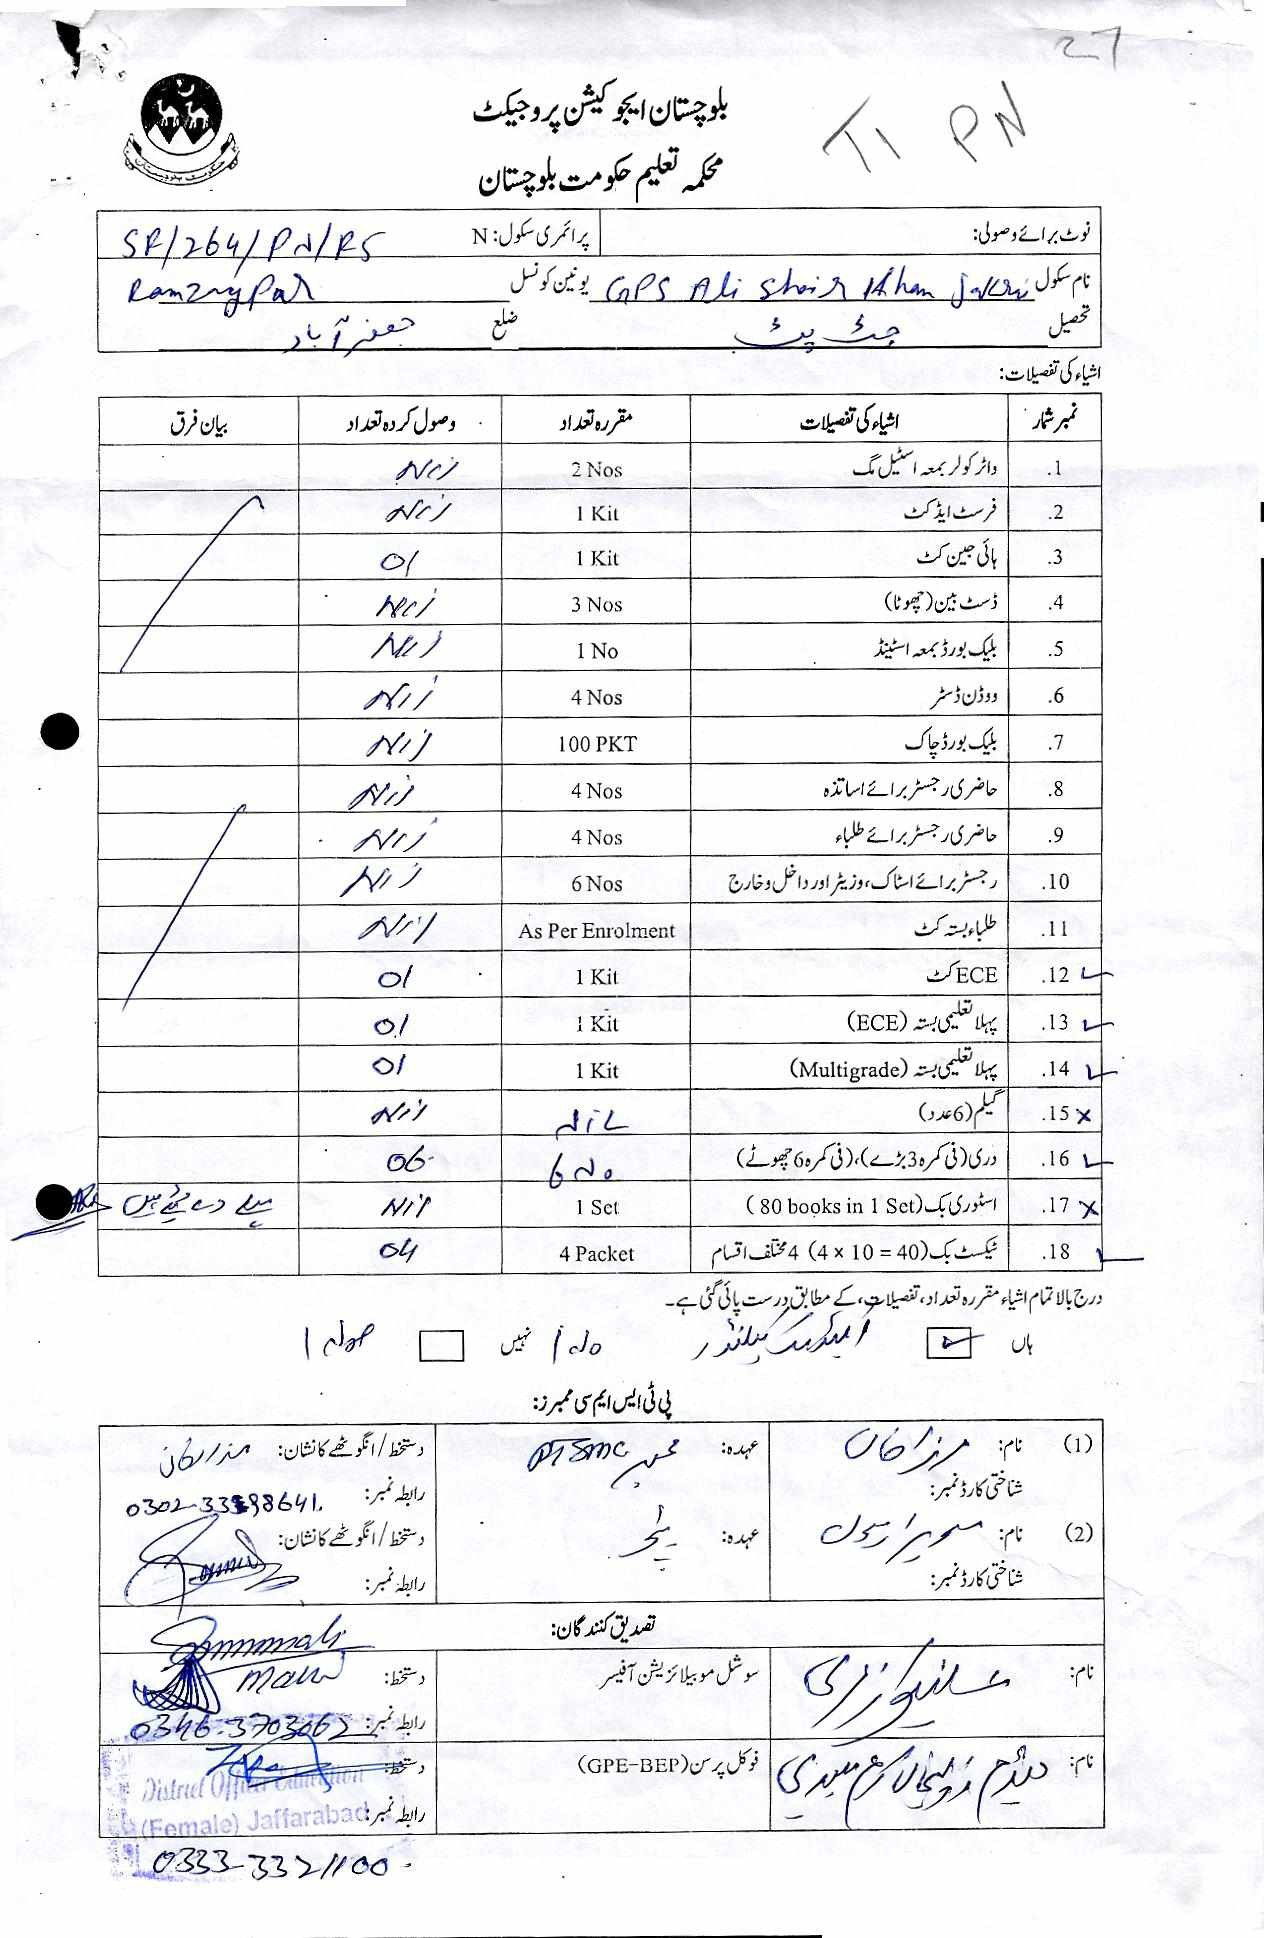 27
T1 PN
بلوچستان ایجوکیشن پروجیکٹ
محکمہ تعلیم حکومت بلوچستان
نوٹ برائے وصولی: پرائمری سکول: N SR/264/PN/RS
نام سکول GPS Ali Sheir Khan یونین کونسل
تحصیل جھٹ پٹ ضلع جعفرآباد
اشیاء کی تفصیلات:
نمبر شمار اشیاء کی تفصیلات مقررہ تعداد وصول کردہ تعداد بیان فرق
.1 واٹر کولر بمعہ اسٹیل مگ 2 Nos Nil
.2 فرسٹ ایڈ کٹ 1 Kit Nil
.3 ہائی جین کٹ 1 Kit 01
.4 ڈسٹ بین (چھوٹا) 3 Nos Nil
.5 بلیک بورڈ بمعہ اسٹینڈ 1 No Nil
.6 ووڈن ڈسٹر 4 Nos Nil
.7 بلیک بورڈ چاک 100 PKT Nil
.8 حاضری رجسٹر برائے اساتذہ 4 Nos Nil
.9 حاضری رجسٹر برائے طلباء 4 Nos Nil
.10 رجسٹر برائے اسٹاک، وزیٹر اور داخل و خارج 6 Nos Nil
.11 طلباء بستہ کٹ As Per Enrolment Nil
.12 ECE کٹ 1 Kit 01
.13 پہلا تعلیمی بستہ (ECE) 1 Kit 01
.14 پہلا تعلیمی بستہ (Multigrade) 1 Kit 01
.15 گیلم (6 عدد) NIL Nil
.16 دری (فی کمرہ 3 بڑے)، (فی کمرہ 6 چھوٹے) 6 No 06
.17 اسٹوری بک (80 books in 1 Set) 1 Set Nil پہلے دے چکے ہیں
.18 ٹیکسٹ بک (4 x 10 = 40) 4 مختلف اقسام 4 Packet 04
درج بالا تمام اشیاء مقررہ تعداد، تفصیلات، کے مطابق درست پائی گئی ہے۔
ہاں نہیں
پی ٹی ایس ایم سی ممبرز:
(1) نام: عہدہ: PTSMC دستخط/انگوٹھے کا نشان:
شناختی کارڈ نمبر: رابطہ نمبر:
(2) نام: سمیرا رسول عہدہ: ٹیچر دستخط/انگوٹھے کا نشان:
شناختی کارڈ نمبر: رابطہ نمبر:
تصدیق کنندگان:
نام: سوشل موبیلائزیشن آفیسر دستخط:
رابطہ نمبر: 0346-3703062
نام: فوکل پرسن (GPE-BEP) دستخط:
District Officer Education
رابطہ نمبر:
(Female) Jaffarabad
0333-3321100